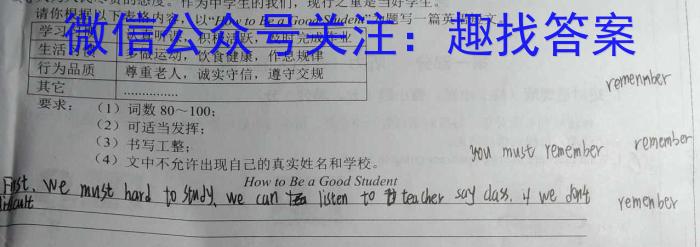 作为中学生的我们，现行之重是当好学生。
请你根据以下表格内容，以"How to Be a Good Student"为题写一篇英语短文。
微信公众号关注：趣找答案
生活 多做运动，饮食健康，作息规律
行为品质 尊重老人，诚实守信，遵守交规
其它 ...............
remenmber
要求：（1）词数 80～100；
（2）可适当发挥；
（3）书写工整；
you must remember remember
（4）文中不允许出现自己的真实姓名和学校。
How to Be a Good Student
First, we must hard to study, we can listen to teacher say class, if we don't remenber